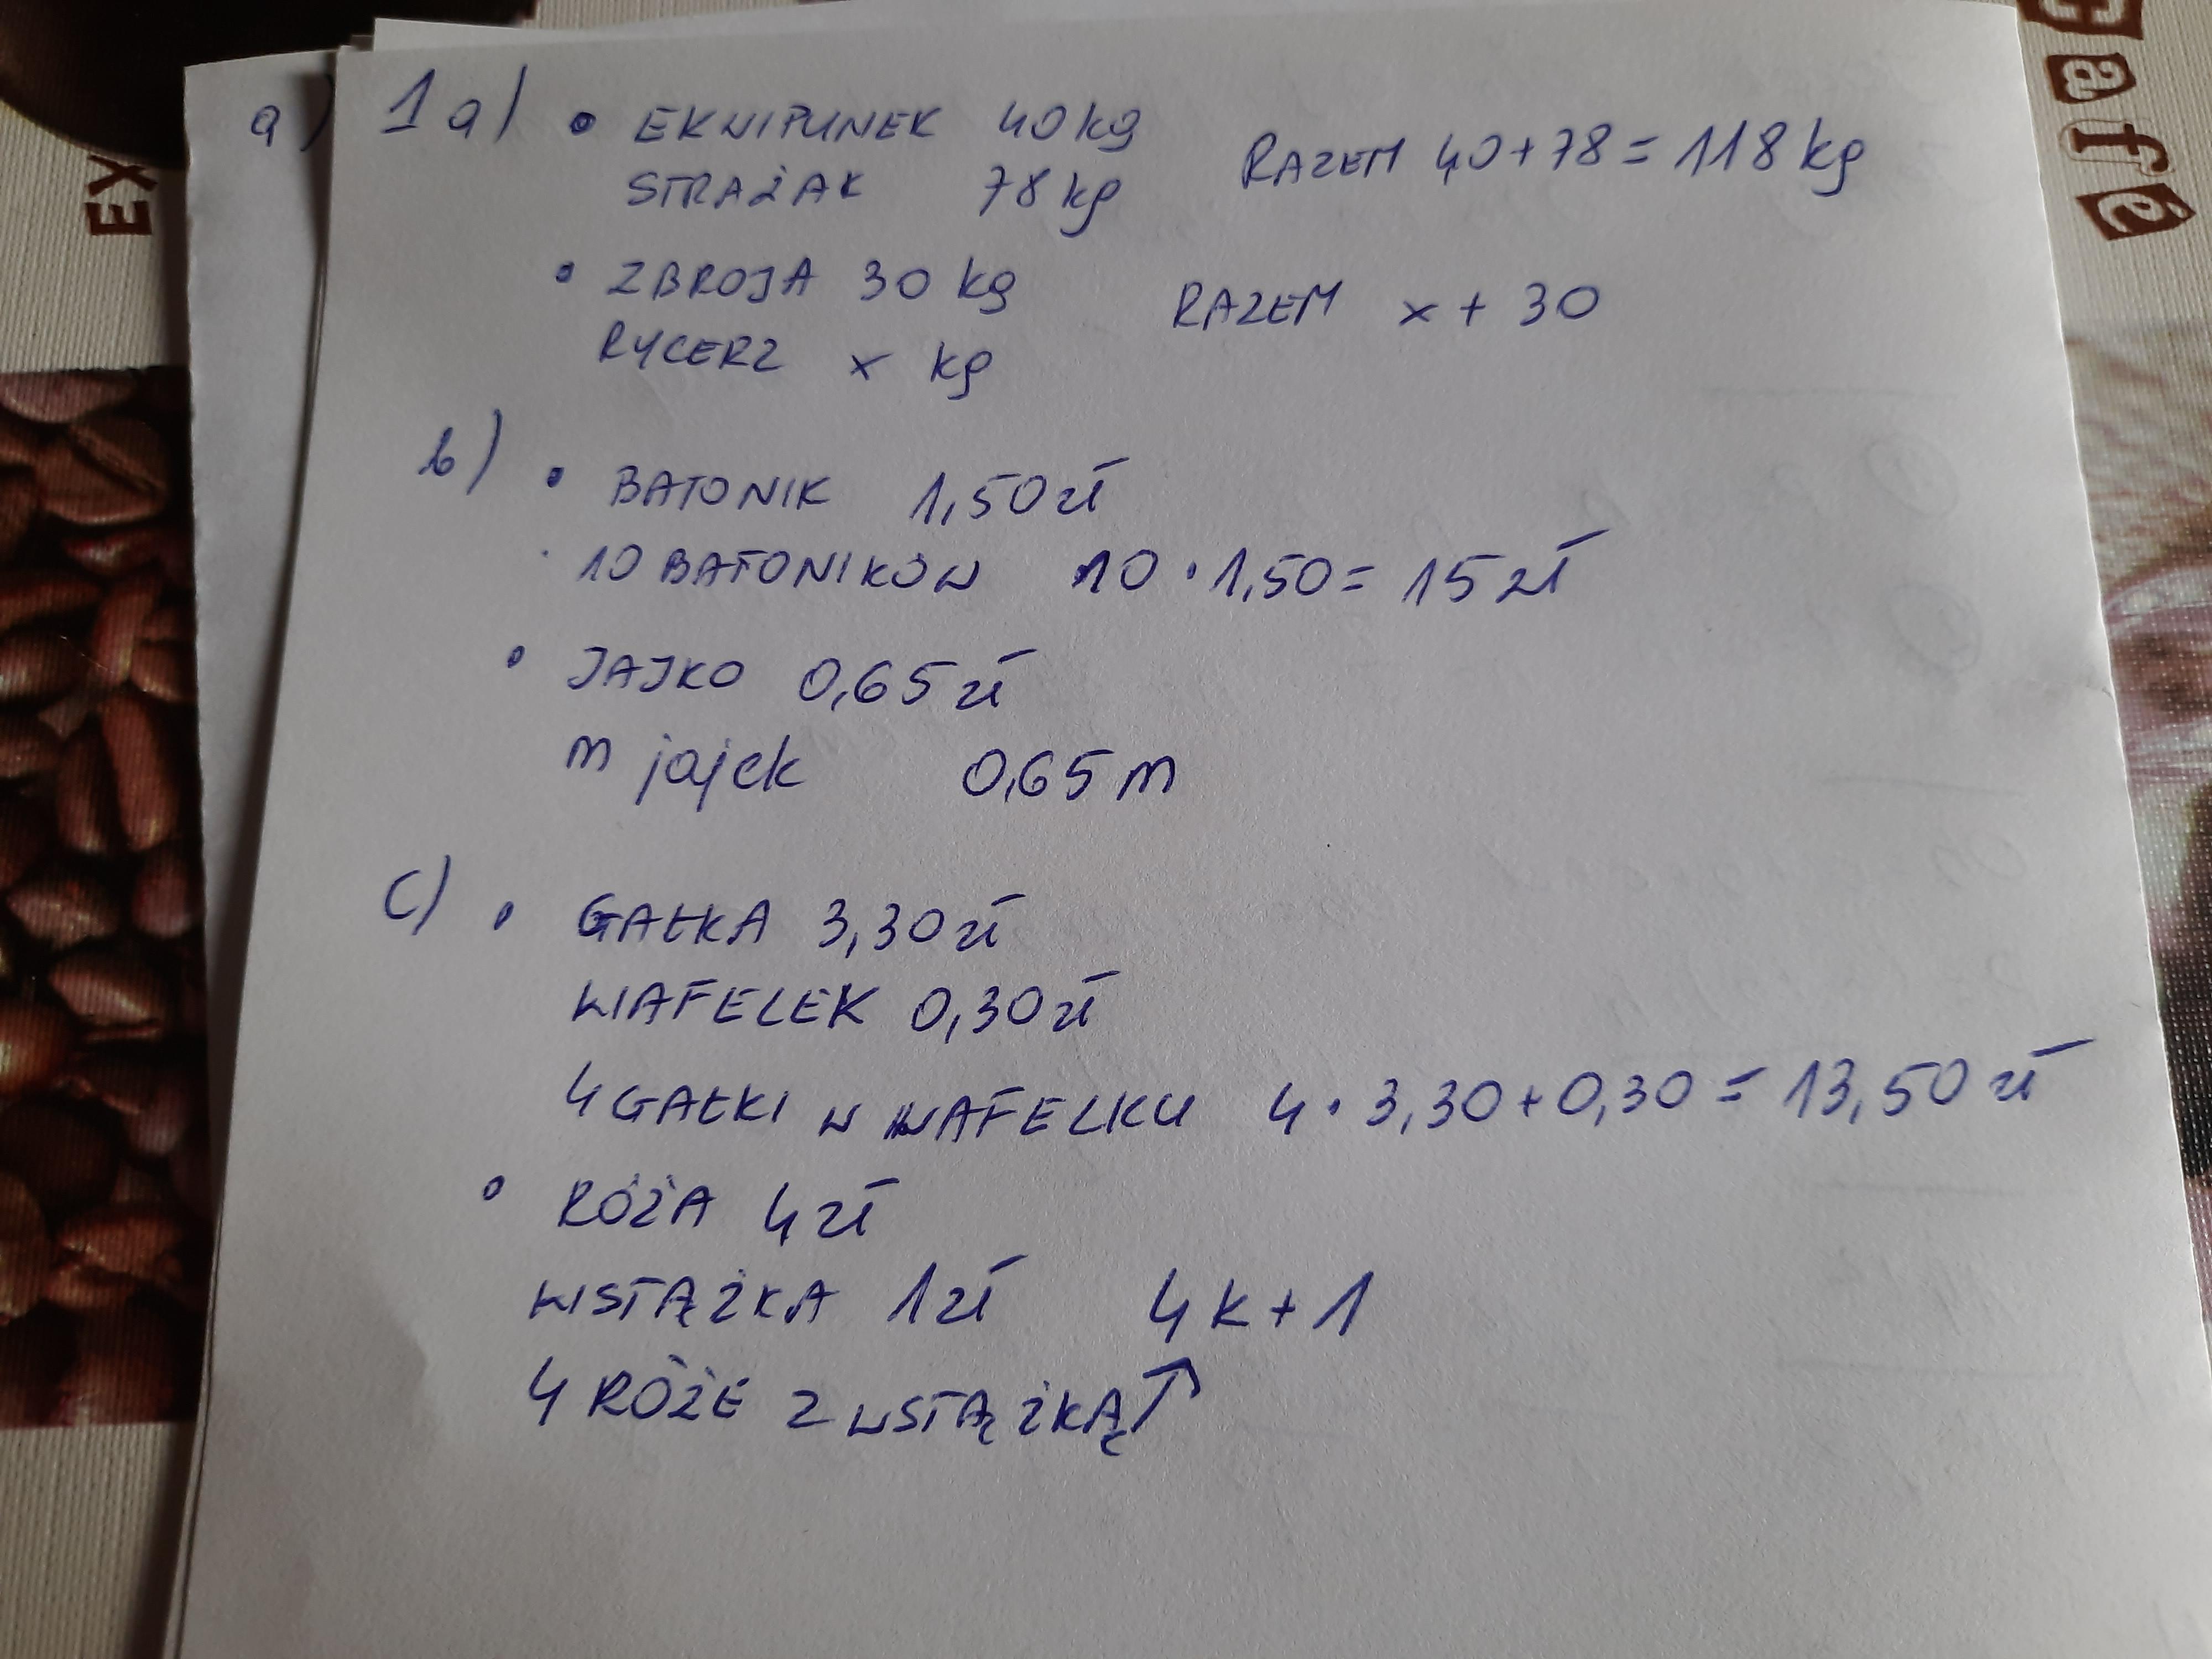 a)
1a) • EKWIPUNEK 40 kg RAZEM 40+78= 118 kg
STRAŻAK 78 kg
• ZBROJA 30 kg RAZEM x + 30
RYCERZ x kg
b) • BATONIK 1,50 zł
10 BATONIKÓW 10 · 1,50= 15 zł
• JAJKO 0,65 zł
m jajek 0,65 m
c) • GAŁKA 3,30 zł
WAFELEK 0,30 zł
4 GAŁKI W WAFELKU 4 · 3,30+0,30 = 13,50 zł
• RÓŻA 4 zł
WSTĄŻKA 1 zł 4k + 1
4 RÓŻE Z WSTĄŻKĄ ↑
EX
afé